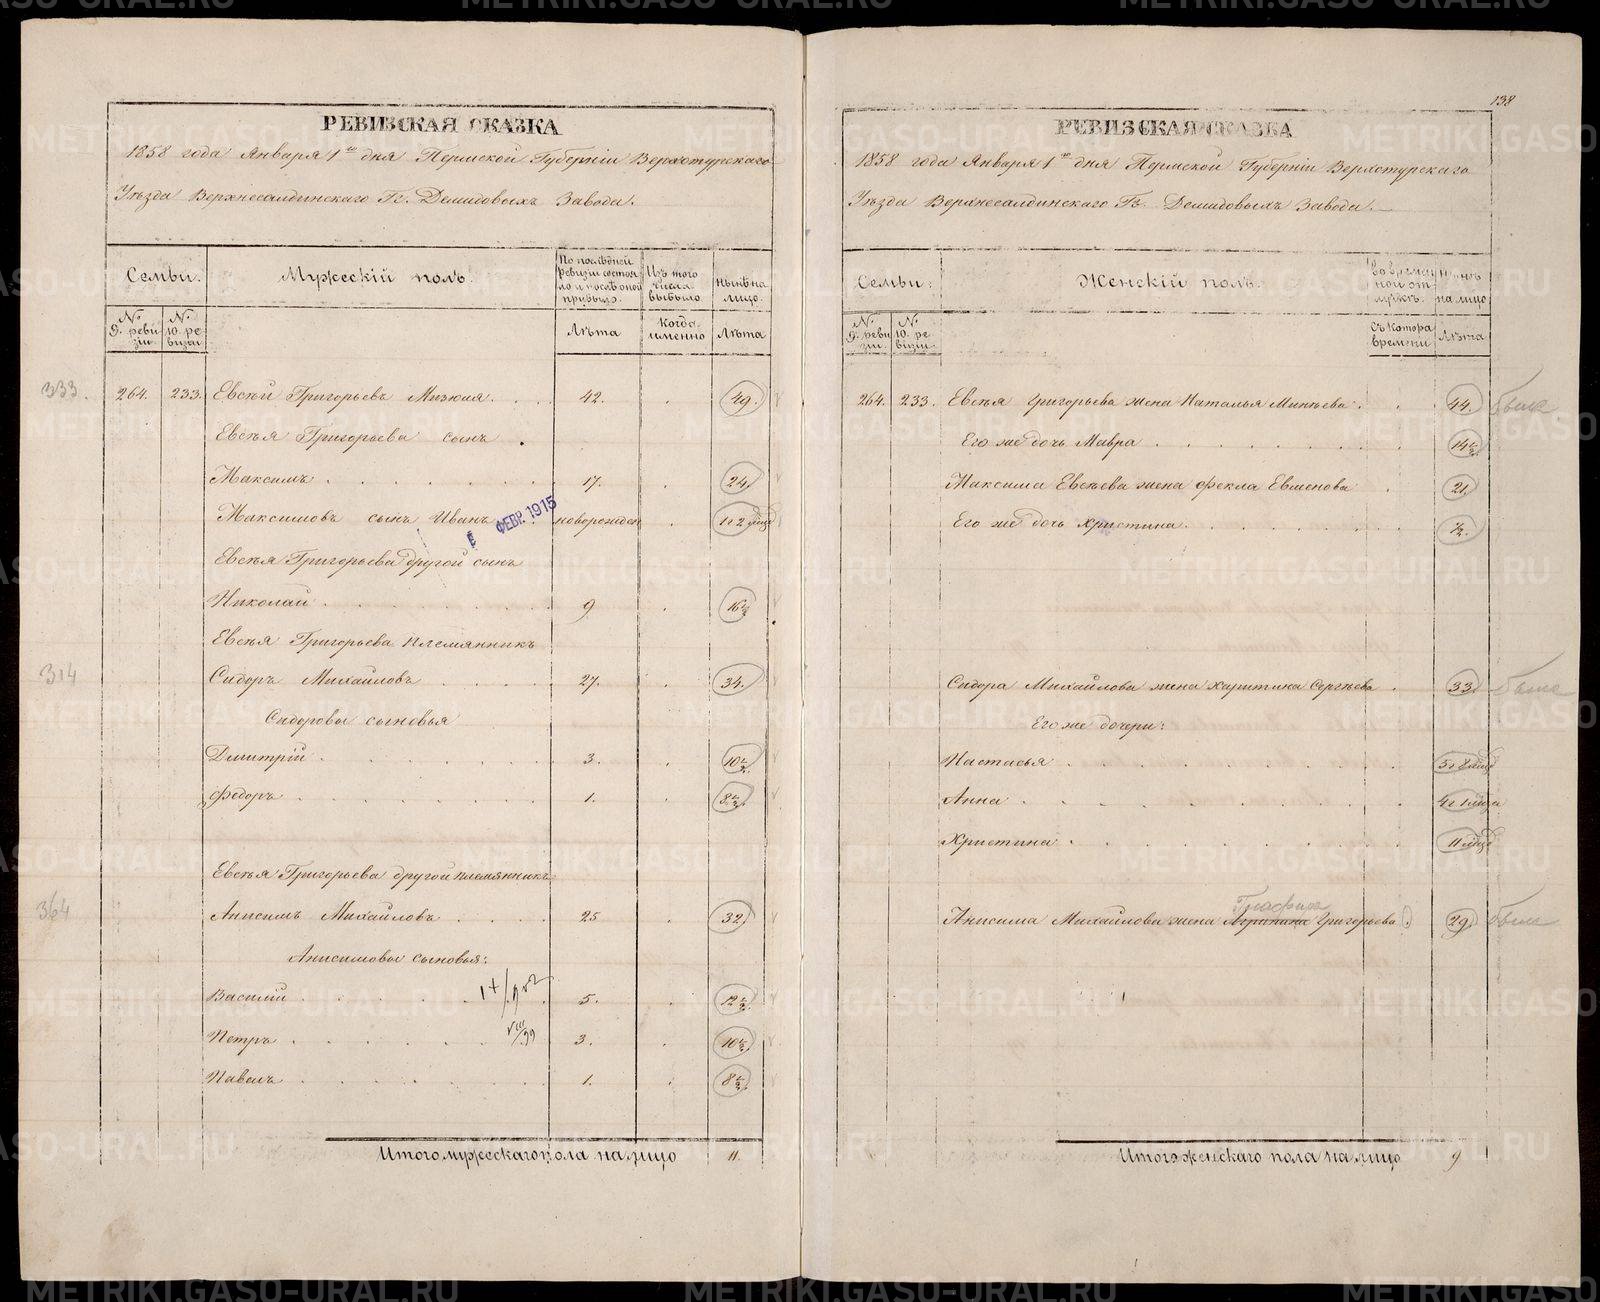 РЕВИЗСКАЯ СКАЗКА
1858 года Января 1го дня Пермской Губерніи Верхотурскаго
Уѣзда Верхнесалдинскаго Гг. Демидовыхъ Завода.
Семьи.
Мужескій полъ.
По послѣдней ревизіи состояло и послѣ оной прибыло.
Изъ того числа выбыло
Нынѣ на лицо.
№ 9. ревизіи.
№ 10. ревизіи
Лѣта
Когда именно
Лѣта
333.
264. 233. Евсѣй Григорьевъ Мизюля. 42. 49.
Евсѣя Григорьева сынъ
Максимъ 17. 24.
Максимовъ сынъ Иванъ новорожден 1 г 2 мѣсц
ФЕВР. 1915
Евсѣя Григорьева другой сынъ
Николай 9 16½
Евсѣя Григорьева племянникъ
314
Сидоръ Михайловъ 27. 34.
Сидоровы сыновья
Дмитрій 3. 10½.
Федоръ 1. 8½.
Евсѣя Григорьева другой племянникъ
364
Анисимъ Михайловъ 25 32.
Анисимовы сыновья:
Василій 5. 12½.
Петръ VIII/99 3. 10½.
Павелъ 1. 8½.
Итого мужескаго пола на лицо 11.
138
РЕВИЗСКАЯ СКАЗКА
1858 года Января 1го дня Пермской Губерніи Верхотурскаго
Уѣзда Верхнесалдинскаго Гг. Демидовыхъ Завода.
Семьи:
Женскій полъ.
Во временной отлучкѣ.
Нынѣ на лицо
№ 9. ревизіи.
№ 10. ревизіи
Съ котора времени
Лѣта
264. 233. Евсѣя Григорьева жена Наталья Минѣева. 44.
Его же дочь Мавра 14½.
Максима Евсѣева жена Фекла Евменова 21.
Его же дочь Христина. ½.
Сидора Михайлова жена Харитина Сергѣева 33
Его же дочери:
Настасья 5 г 8 мѣсц
Анна 4 г 1 мѣсца
Христина 11 мѣсц
Глафира
Анисима Михайлова жена Агрипина Григорьева 29.
Итого женскаго пола на лицо 9
METRIKI.GASO-URAL.RU